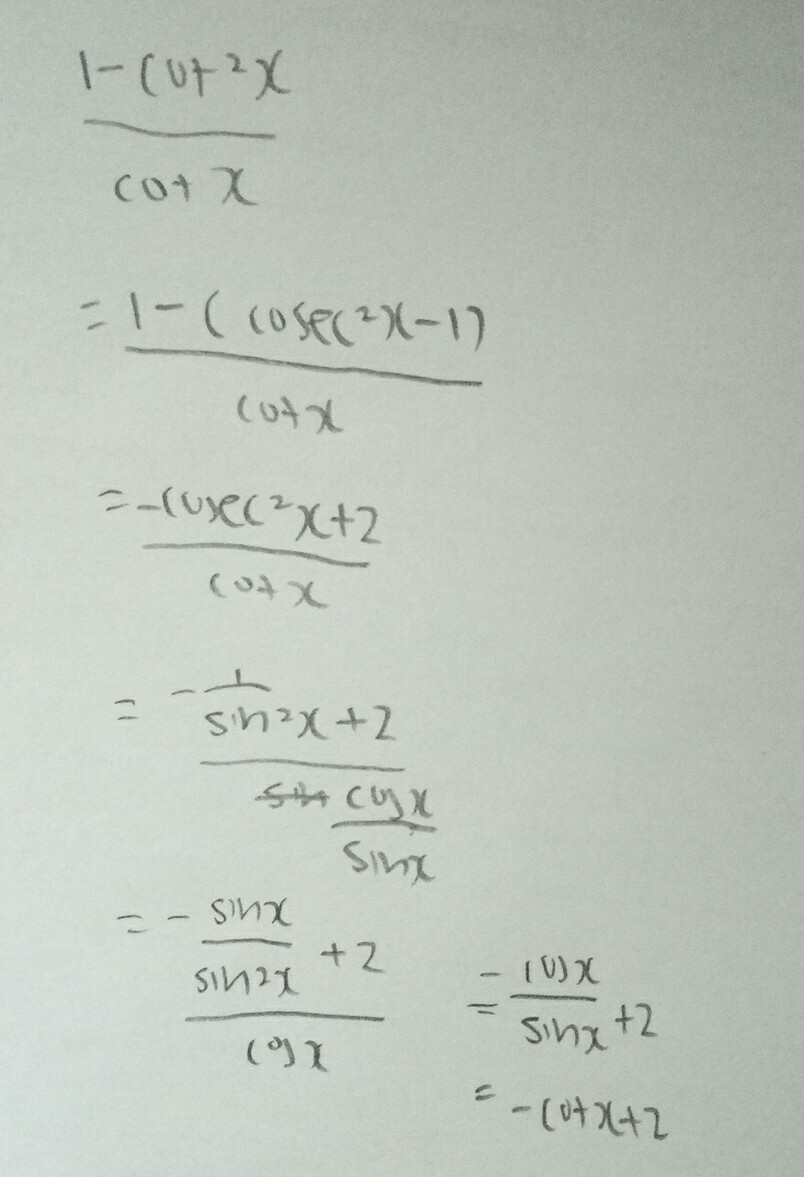 1-cot²x
cot x
=1-(cosec²x-1)
cotx
=-cosec²x+2
cotx
= -1
sin²x+2
cosx
sinx
= - sinx
sin²x +2
cosx
= -cosx
sinx +2
= -cotx+2